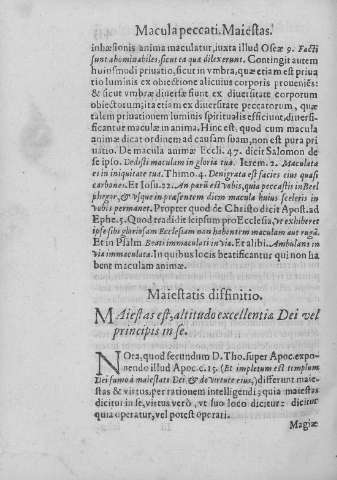 Macula peccati. Maiestas.
inhæsionis anima maculatur, iuxta illud Oseæ 9. Facti
sunt abominabiles, sicut ea quæ dilexerunt. Contingit autem
huiusmodi priuatio, sicut in vmbra, quæ etiam est priua
tio luminis ex obiectione alicuius corporis proueniēs:
& sicut vmbræ diuersæ fiunt ex diuersitate corporum
obiectorum, ita etiam ex diuersitate peccatorum, quæ
talem priuationem luminis spiritualis efficiunt, diuersi-
ficantur maculæ in anima. Hinc est, quod cum macula
animæ dicat ordinem ad causam suam, non est pura pri
uatio. De macula animæ Eccli. 47. dicit Salomon de
se ipso. Dedisti maculam in gloria tua. Ierem. 2. Maculata
es in iniquitate tua. Thimo. 4. Denigrata est facies eius quasi
carbones. Et Iosu. 22. An parū est vobis, quia peccastis in Beel
phegor, & vsque in præsentem diem macula huius sceleris in
vobis permanet. Propter quod de Christo dicit Apost. ad
Ephe. 5. Quod tradidit seipsum pro Ecclesia, vt exhiberet
ipse sibi gloriosam Ecclesiam non habentem maculam aut rugā.
Et in Psalm. Beati immaculati in via. Et alibi. Ambulans in
via immaculata. In quibus locis beatificantur qui non ha
bent maculam animæ.
Maiestatis diffinitio.
MAiestas est, altitudo excellentiæ Dei vel
principis in se.
NOta, quod secundum D. Tho. super Apoc. expo-
nendo illud Apoc. c. 15. (Et impletum est templum
Dei fumo à maiestate Dei & de virtute eius,) differunt maie-
stas & virtus, per rationem intelligendi; quia maiestas
dicitur in se, virtus verò, vt suo loco dicetur: dicitur
quia operatur, vel potest operari.
Magiæ